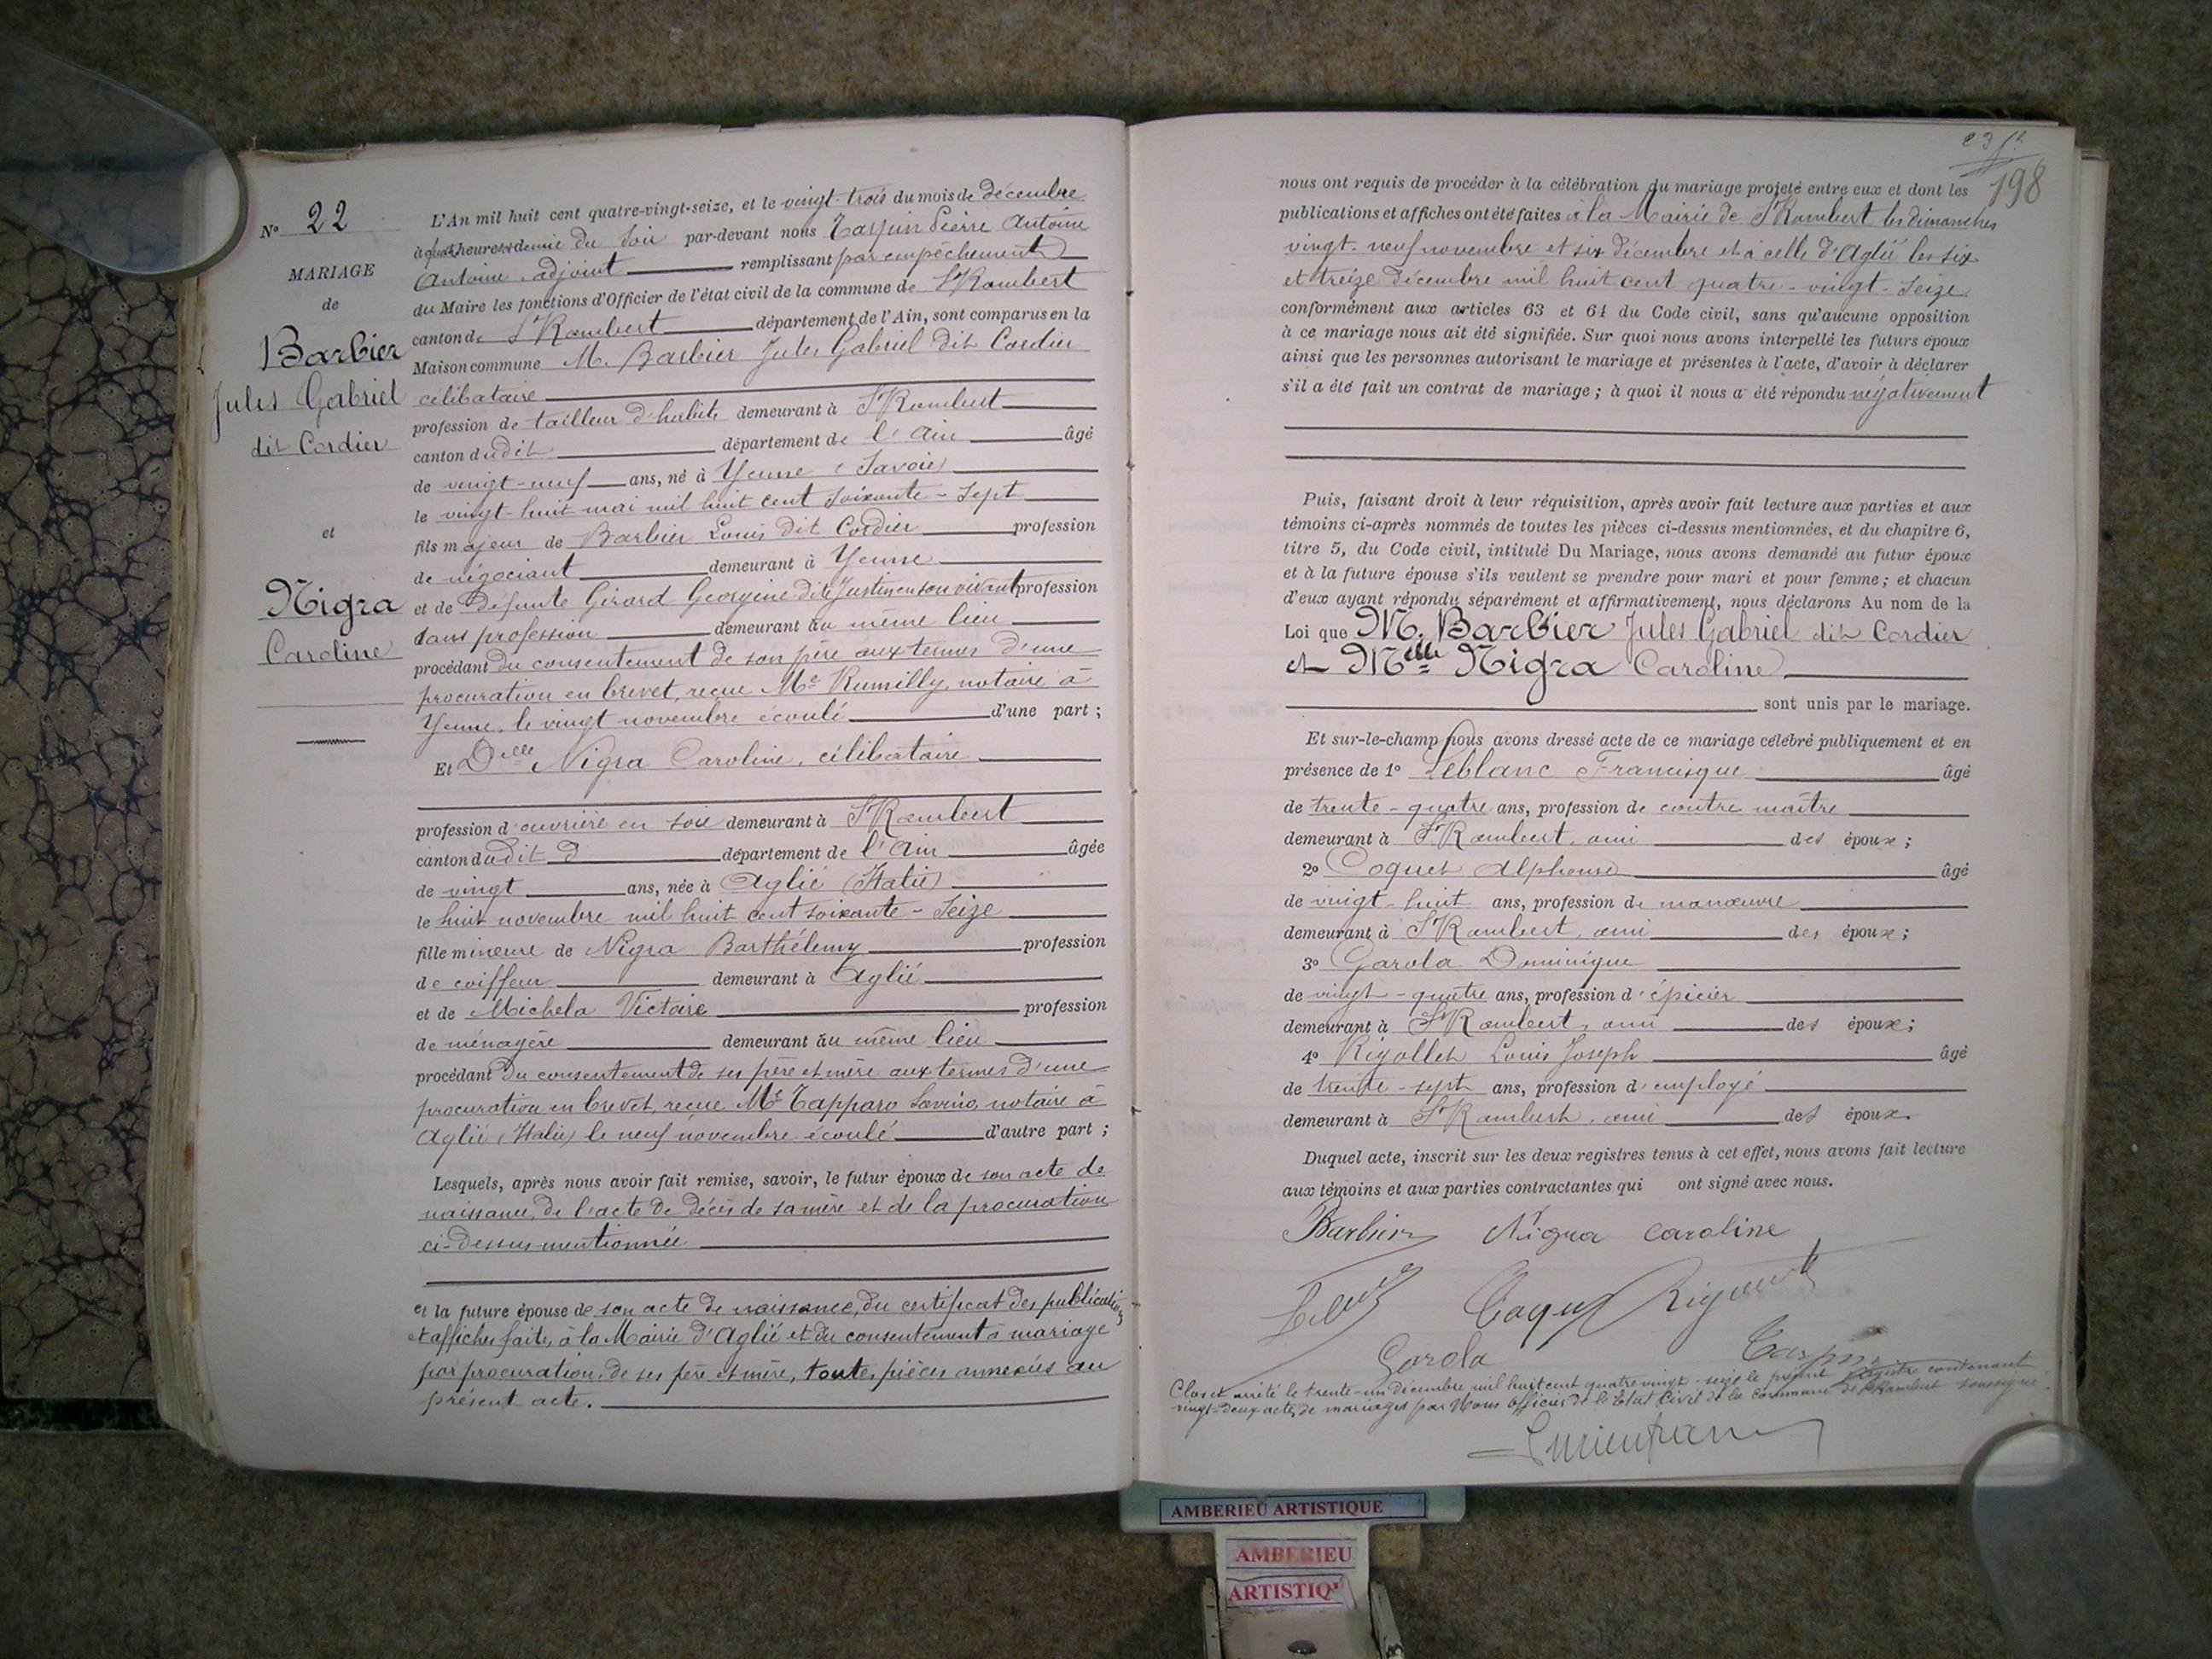 N° 22
MARIAGE
de
Barbier
Jules Gabriel
dit Cordier
et
Nigra
Caroline
L'An mil huit cent quatre-vingt-seize, et le vingt-trois du mois de décembre
à quatre heures et demie du soir par-devant nous Tarpin Pierre Antoine
Antoine, adjoint remplissant par empêchement
du Maire les fonctions d'Officier de l'état civil de la commune de St Rambert
canton de St Rambert département de l'Ain, sont comparus en la
Maison commune M. Barbier Jules Gabriel dit Cordier
célibataire
profession de tailleur d'habits demeurant à St Rambert
canton dudit département de l'Ain âgé
de vingt-neuf ans, né à Yenne (Savoie)
le vingt-huit mai mil huit cent soixante-sept
fils majeur de Barbier Louis dit Cordier profession
de négociant demeurant à Yenne
et de défunte Girard Georgine dite Justine en son vivant profession
sans profession demeurant au même lieu
procédant du consentement de son père aux termes d'une
procuration en brevet, reçue Me Rumilly, notaire à
Yenne, le vingt novembre écoulé d'une part ;
Et Delle Nigra Caroline, célibataire
profession d'ouvrière en soie demeurant à St Rambert
canton dudit d département de l'Ain âgée
de vingt ans, née à Aglié (Italie)
le huit novembre mil huit cent soixante-seize
fille mineure de Nigra Barthélemy profession
de coiffeur demeurant à Aglié
et de Michela Victoire profession
de ménagère demeurant au même lieu
procédant du consentement de ses père et mère aux termes d'une
procuration en brevet, reçue Me Tapparo Savino, notaire à
Aglié (Italie) le neuf novembre écoulé d'autre part ;
Lesquels, après nous avoir fait remise, savoir, le futur époux de son acte de
naissance, de l'acte de décès de sa mère et de la procuration
ci-dessus mentionnée
et la future épouse de son acte de naissance, du certificat des publications
et affiches faites à la Mairie d'Aglié et du consentement à mariage
par procuration de ses père et mère, toutes pièces annexées au
présent acte.
198
nous ont requis de procéder à la célébration du mariage projeté entre eux et dont les
publications et affiches ont été faites à la Mairie de St Rambert les dimanches
vingt-neuf novembre et six décembre et à celle d'Aglié les six
et treize décembre mil huit cent quatre-vingt-seize
conformément aux articles 63 et 64 du Code civil, sans qu'aucune opposition
à ce mariage nous ait été signifiée. Sur quoi nous avons interpellé les futurs époux
ainsi que les personnes autorisant le mariage et présentes à l'acte, d'avoir à déclarer
s'il a été fait un contrat de mariage ; à quoi il nous a été répondu négativement
Puis, faisant droit à leur réquisition, après avoir fait lecture aux parties et aux
témoins ci-après nommés de toutes les pièces ci-dessus mentionnées, et du chapitre 6,
titre 5, du Code civil, intitulé Du Mariage, nous avons demandé au futur époux
et à la future épouse s'ils veulent se prendre pour mari et pour femme ; et chacun
d'eux ayant répondu séparément et affirmativement, nous déclarons Au nom de la
Loi que M. Barbier Jules Gabriel dit Cordier
et Melle Nigra Caroline
sont unis par le mariage.
Et sur-le-champ nous avons dressé acte de ce mariage célébré publiquement et en
présence de 1° Leblanc Francisque âgé
de trente-quatre ans, profession de contre maître
demeurant à St Rambert, ami des époux ;
2° Coquet Alphonse âgé
de vingt-huit ans, profession de manœuvre
demeurant à St Rambert, ami des époux ;
3° Garola Dominique
de vingt-quatre ans, profession d'épicier
demeurant à St Rambert, ami des époux ;
4° Rigollet Louis Joseph âgé
de trente-sept ans, profession d'employé
demeurant à St Rambert, ami des époux.
Duquel acte, inscrit sur les deux registres tenus à cet effet, nous avons fait lecture
aux témoins et aux parties contractantes qui ont signé avec nous.
Barbier Nigra Caroline
Coquet Rigollet
Garola Tarpin
Clos et arrêté le trente-un décembre mil huit cent quatre vingt-seize le présent registre contenant
vingt-deux actes de mariages par Nous Officier de l'Etat Civil de la commune de St Rambert soussigné
AMBERIEU ARTISTIQUE
AMBERIEU
ARTISTIQ